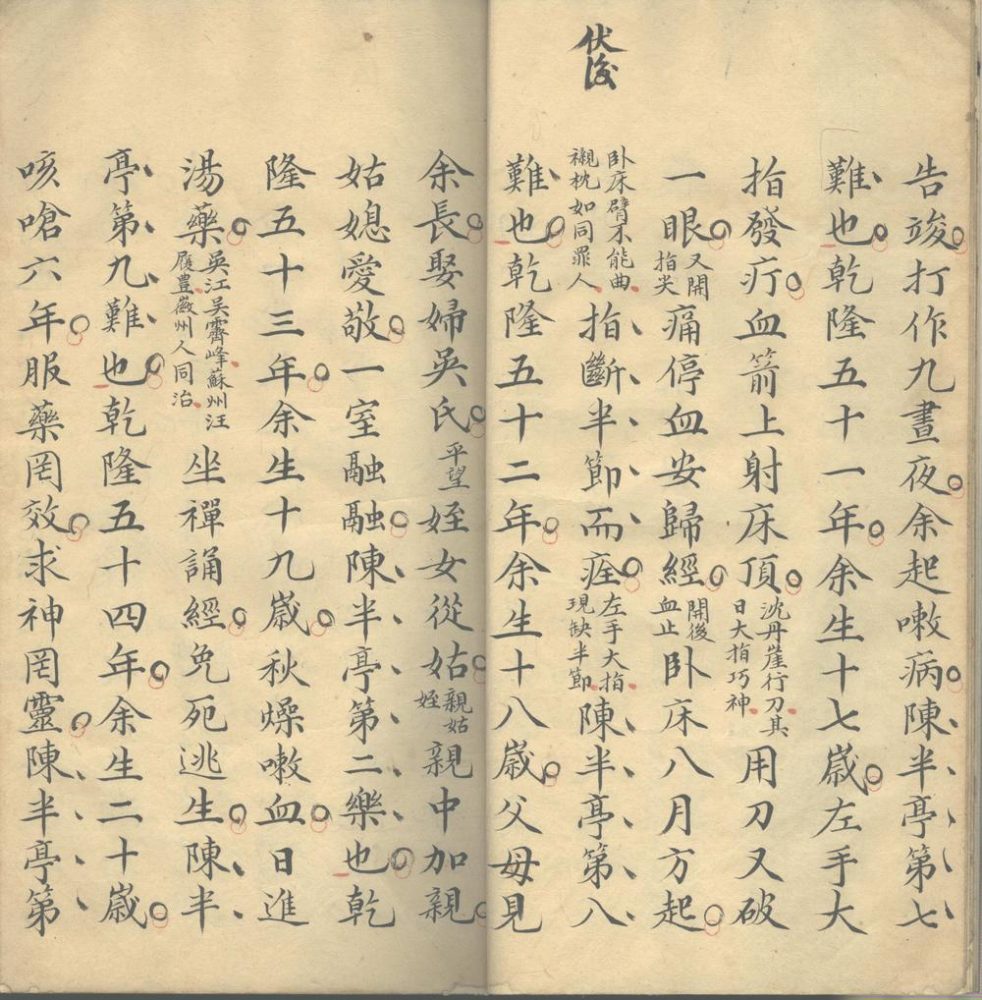 伏後
告竣打作九晝夜余起嗽病陳半亭第七
難也乾隆五十一年余生十七歲左手大
指發疔血箭上射床頂沈丹崖行刀其日大指巧神用刀又破
一眼又開指尖痛停血安歸經開後血止卧床八月方起
卧床臂不能曲襯枕如同罪人指斷半節而痊左手大指現缺半節陳半亭第八
難也乾隆五十二年余生十八歲父母見
余長娶婦吳氏平望姪女從姑親姑姪親中加親
姑媳愛敬一室融融陳半亭第二樂也乾
隆五十三年余生十九歲秋燥嗽血日進
湯藥吳江吳霽峰蘇州汪履豊徽州人同治坐禪誦經免死逃生陳半
亭第九難也乾隆五十四年余生二十歲
咳嗆六年服藥罔效求神罔靈陳半亭第